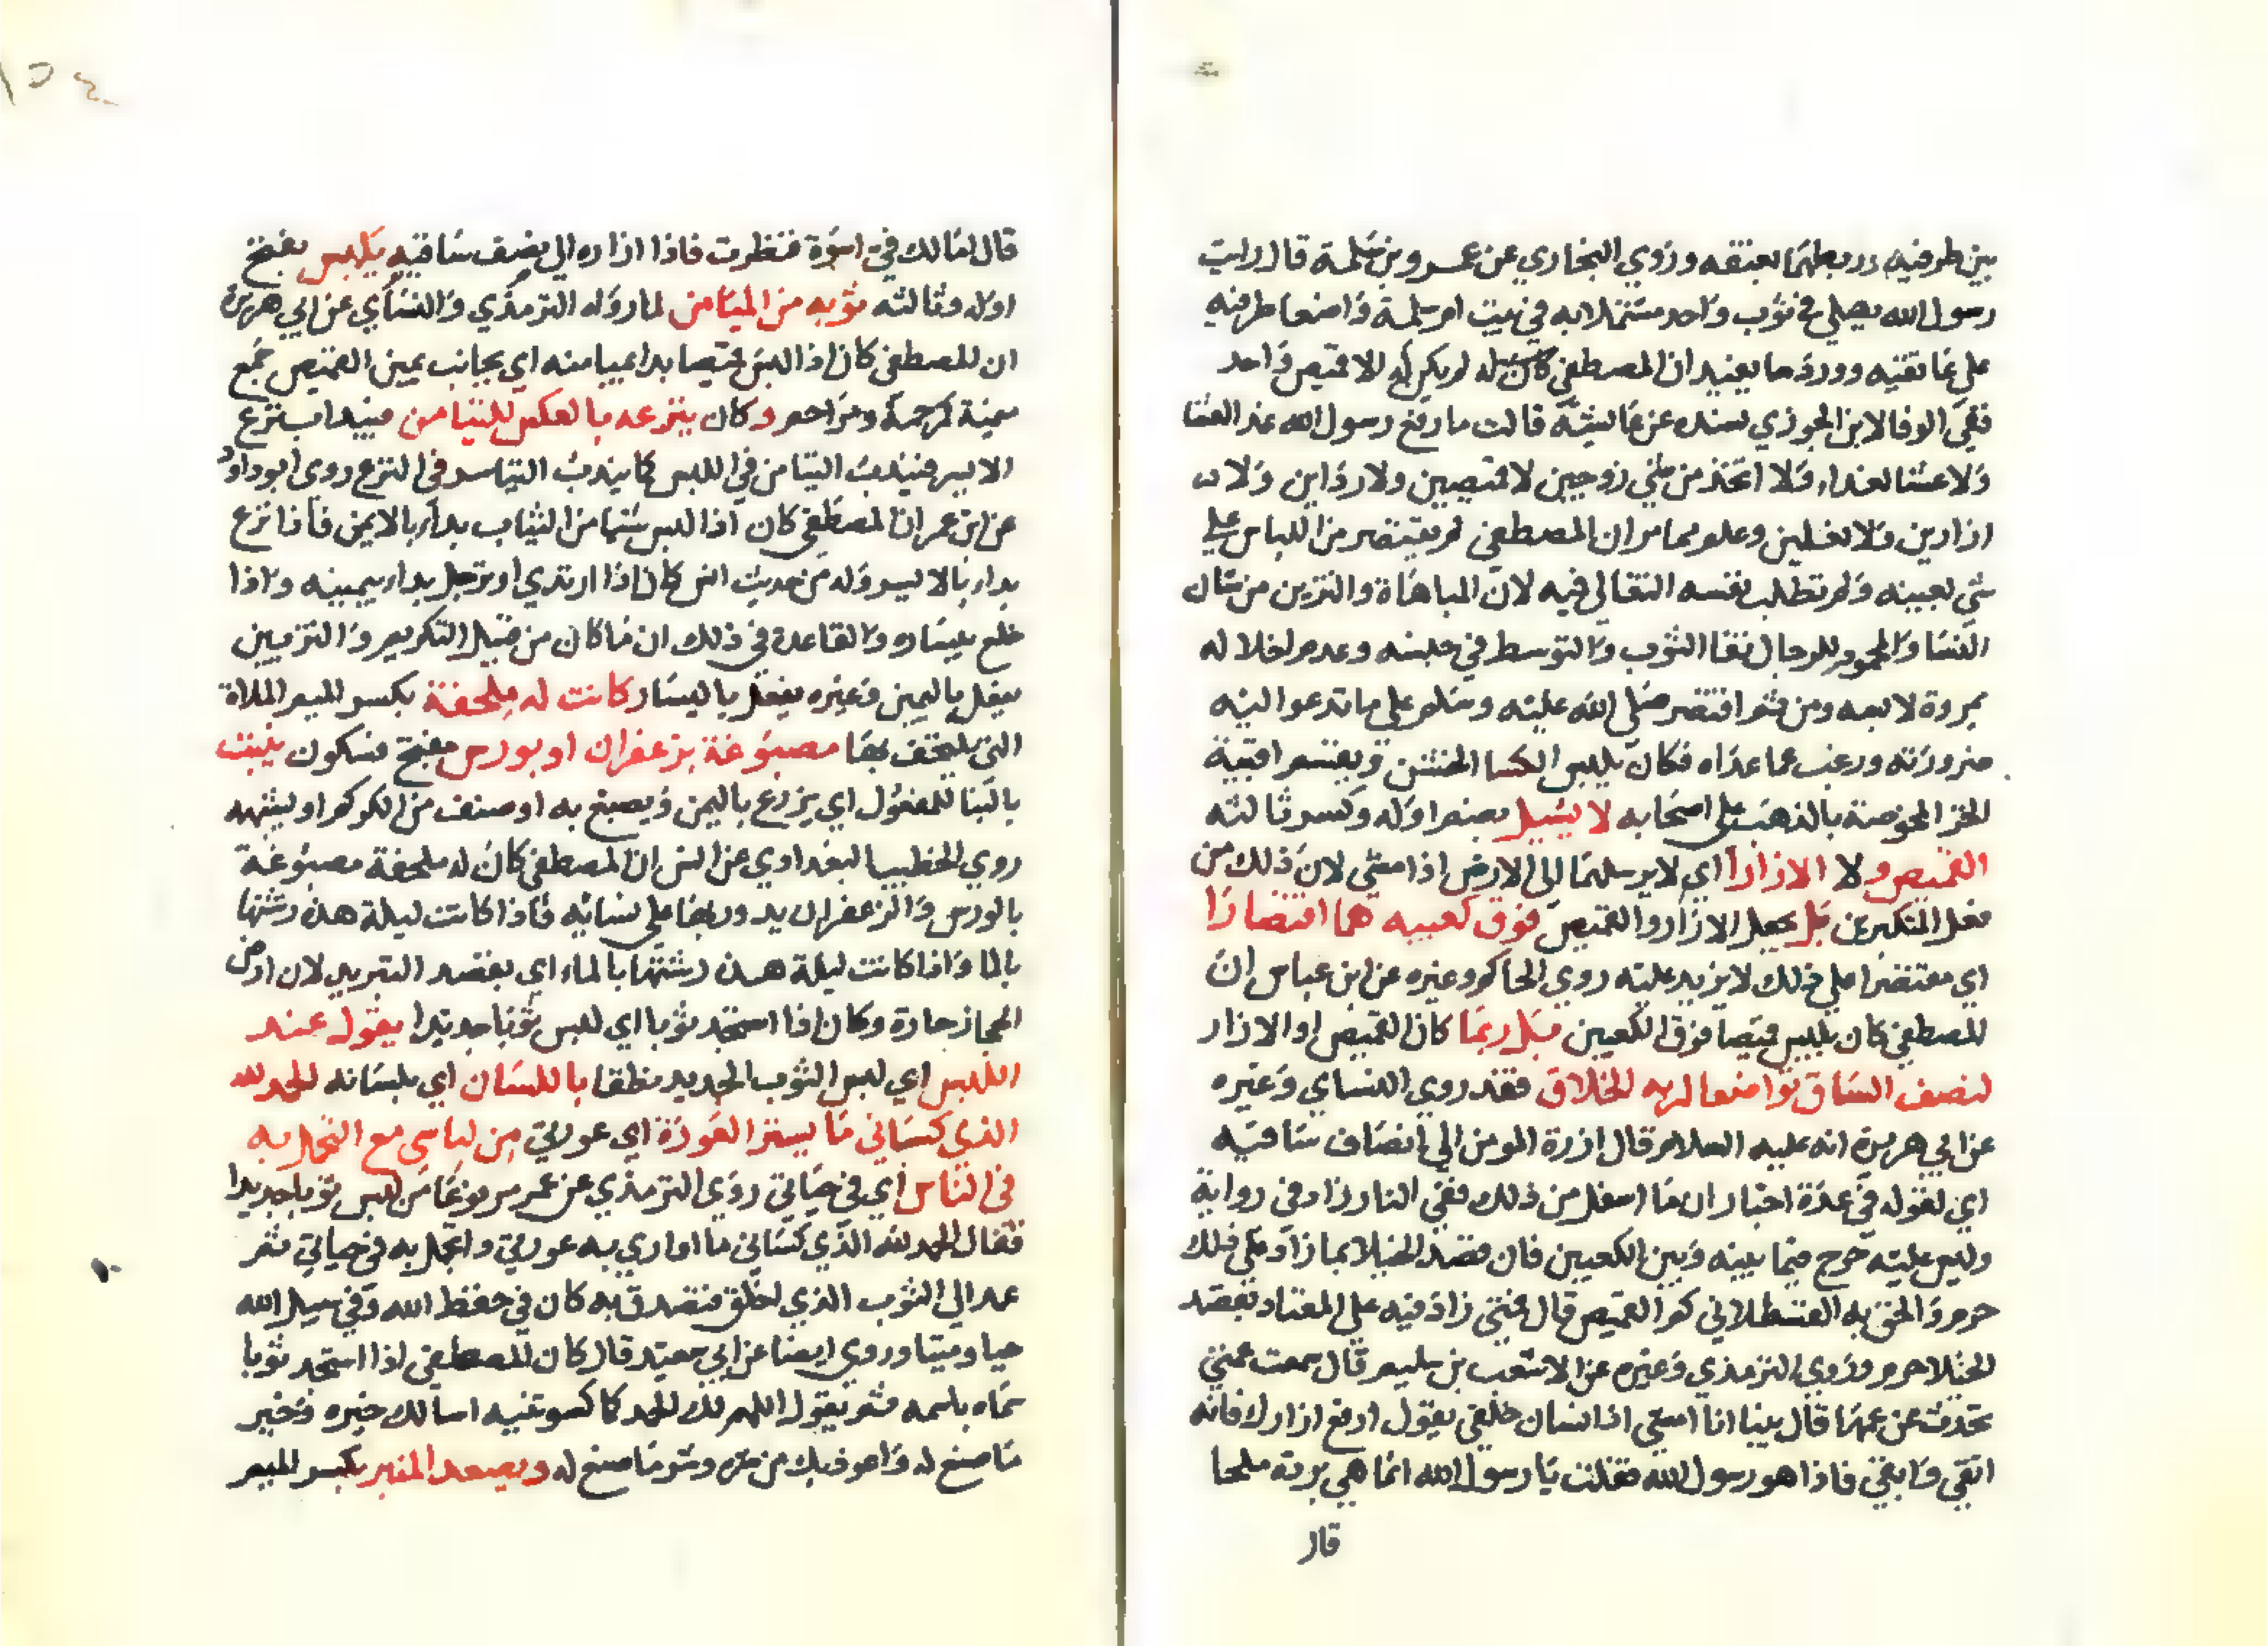 بين طرفيه وربطهما بعنقه وروي البخاري عن عمرو بن سلمة قال رايت
رسول الله يصلي في ثوب واحد مشتملا به في بيت ام سلمة واضعا طرفيه
علي عاتقيه وورد ما يفيد ان المصطفي كان لم يكن له الا قميص واحد
ففي الوفا لابن الجوزي بسنده عن عايشة قالت ما رفع رسول الله غدا لعشا
ولا عشا لغداء ولا اتخذ من شي زوجين لا قميصين ولا رداين ولا
ازارين ولا نعلين وعلم مما مر ان المصطفي لم يقتصر من اللباس علي
شي بعينه ولم تطلب نفسه التغالي فيه لان المباهاة والتزين من شان
النسا والمحمود للرجال نقا الثوب والتوسط في جنسه وعدم اخلاله
بمروة لابسه ومن ثم اقتصر صلي الله عليه وسلم علي ما تدعوا اليه
ضرورته ورغب عما عداه فكان يلبس الكسا الخشن ويقسم اقبية
الخز المخوصة بالذهب علي اصحابه لا يسبل بضم اوله وكسر ثالثه
القميص ولا الازارا اي لا يرسلهما الي الارض اذا مشي لان ذلك من
فعل المتكبرين بل يجعل الازار والقميص فوق كعبيه هما اقتصارا
اي مقتصرا علي ذلك لا يزيد عليه روي الحاكم وغيره عن ابن عباس ان
المصطفي كان يلبس قميصا فوق الكعبين قبل ربما كان القميص او الازار
لنصف الساق تواضعا لربه الخلاق فقد روي النساي وغيره
عن ابي هريرة انه عليه السلام قال ازرة المومن الي انصاف ساقيه
اي لقوله في عدة اخبار ان ما اسفل من ذلك ففي النار زاد في رواية
وليس عليه حرج فيما بينه وبين الكعبين فان قصد الخيلا بما زاد علي ذلك
حرم والحق به القسطلاني كم القميص قال فمتي زاد فيه علي المعتاد بقصد
الخيلا حرم وروي الترمذي وغيره عن الاشعب بن سليم قال سمعت عمتي
تحدث عن عمها قال بينا انا امشي اذا انسان خلفي يقول ارفع ازارك فانه
اتقي وابقي فاذا هو رسول الله فقلت يا رسول الله انما هي بردة ملحا
قال
قال اما لك في اسوة فنظرت فاذا ازاره الي نصف ساقيه يلبس بفتح
اوله وثالثه ثوبه من الميامن لما روله الترمذي والنساي عن ابي هريرة
ان المصطفي كان اذا لبس قميصا بدا بميامنه اي بجانب يمين القميص جمع
ميمنة كمرحمة ومراحم وكان ينزعه بالعكس للتيامن فيبدا بنزع
الايسر فيندب التيامن في اللبس كما يندب التياسر في النزع روي ابو داود
عن ابن عمر ان المصطفي كان اذا لبس شيا من الثياب بدا بالايمن فاذا نزع
بدا بالايسر وله من حديث انس كان اذا ارتدي او ترجل بدا بيمينه واذا
خلع بيساره والقاعدة في ذلك ان ما كان من قبيل التكريم والتزيين
يفعل باليمين وغيره يفعل باليسار كانت له ملحفة بكسر الميم الملاة
التي يلتحف بها مصبوغة بزعفران او بورس بفتح فسكون ينبت
بالبنا للمفعول اي يزرع باليمن ويصبغ به او صنف من الكركم او يشبهه
روي الخطيب البغداوي عن انس ان المصطفي كان له ملحفة مصبوغة
بالورس والزعفران يدور بها علي نسايه فاذا كانت ليلة هذه رشتها
بالما واذا كانت ليلة هذه رشتها بالماء اي بقصد التبريد لان ارض
الحجاز حارة وكان اذا استجد ثوبا اي لبس ثوبا جديدا يقول عند
اللبس اي لبس الثوب الجديد منطقا باللسان اي بلسانه الحمد لله
الذي كساني ما يستر العورة اي عورتي من لباس مع التجمل به
في الناس اي في حياتي روي الترمذي عن عمر مرفوعا من لبس ثوبا جديدا
فقال الحمد لله الذي كساني ما اواري به عورتي واتجمل به في حياتي ثم
عمد الي الثوب الذي اخلق فتصدق به كان في حفظ الله وفي سبيل الله
حيا وميتا وروي ايضا عن ابي سعيد قال كان المصطفي اذا استجد ثوبا
سماه باسمه ثم يقول اللهم لك الحمد كما كسوتنيه اسالك خيره وخير
ما صنع له واعوذ بك من شره وشر ما صنع له ويصعد المنبر بكسر الميم